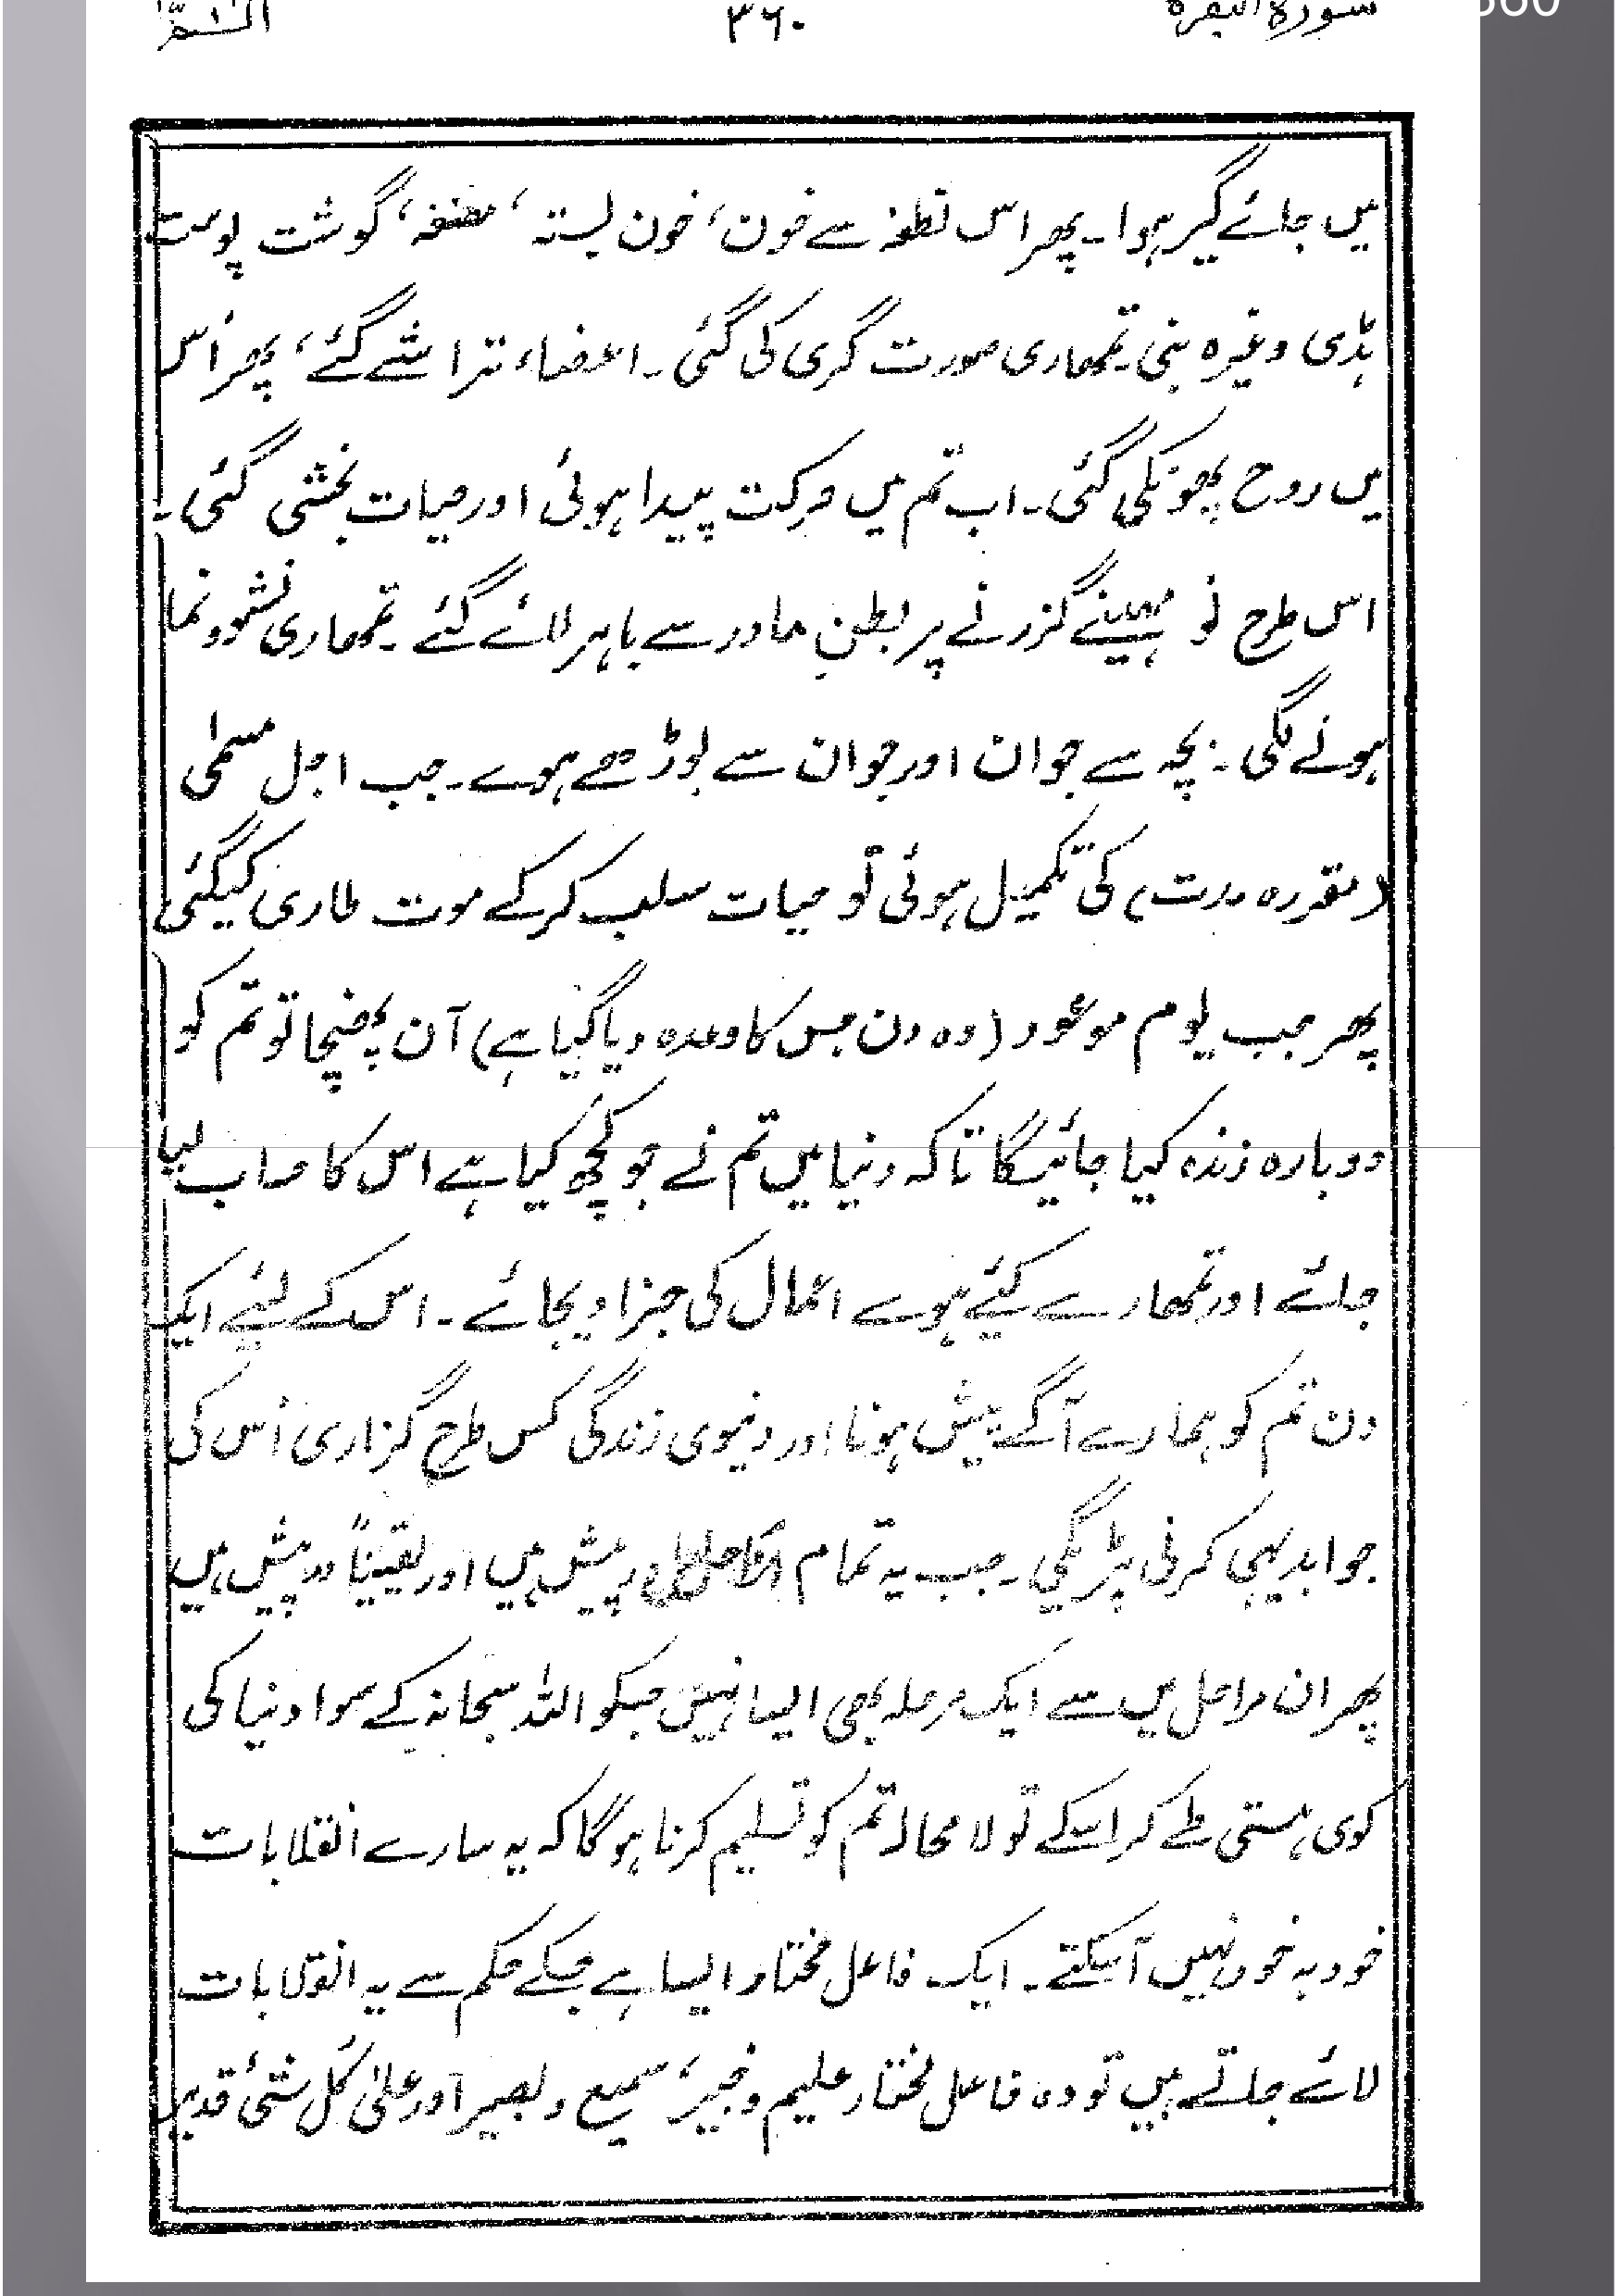 سورة البقرة ۳٦۰ الٓـمّٓ ۱
میں جائے گیر ہوا۔ پھر اس نطفہ سے خون، خون بستہ، مضغہ، گوشت پوست
ہڈی وغیرہ بنی۔ تمھاری صورت گری کی گئی۔ اعضاء تراشے گئے، پھر اُس
میں روح پھونکی گئی۔ اب تم میں حرکت پیدا ہوئی اور حیات بخشی گئی۔
اس طرح نو مہینے گزرنے پر بطنِ مادر سے باہر لائے گئے۔ تمھاری نشوونما
ہونے لگی۔ بچہ سے جوان اور جوان سے بوڑھے ہوے۔ جب اجل مسمّٰی
(مقررہ مدت) کی تکمیل ہوئی تو حیات سلب کرکے موت طاری کیگئی
پھر جب یوم موعود (وہ دن جس کا وعدہ دیا گیا ہے) آن پھنچا تو تم کو
دوبارہ زندہ کیا جائیگا تاکہ دنیا میں تم نے جو کچھ کیا ہے اس کا حساب لیا
جائے اور تمھارے کئیے ہوے اعمال کی جزا دیجائے۔ اس کے لئیے ایک
دن تم کو ہمارے آگے پیش ہونا اور دنیوی زندگی کس طرح گزاری اُس کی
جوابدیہی کرنی پڑیگی۔ جب یہ تمام درپیش ہیں اور یقیناً درپیش ہیں
پھر ان مراحل میں سے ایک مرحلہ بھی ایسا نہیں جسکو اللہ سبحانہ کے سوا دنیا کی
کوی ہستی طے کراسکے تو لا محالہ تم کو تسلیم کرنا ہوگا کہ یہ سارے انقلابات
خود بہ خود نہیں آسکتے۔ ایک فاعل مختار ایسا ہے جسکے حکم سے یہ انقلابات
لائے جاتے ہیں تو وہ فاعل مختار علیم و خبیر، سمیع و بصیر اور علیٰ کُل شئ قدیر